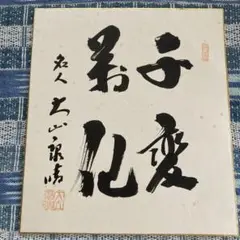 千變
萬化
名人 大山康晴